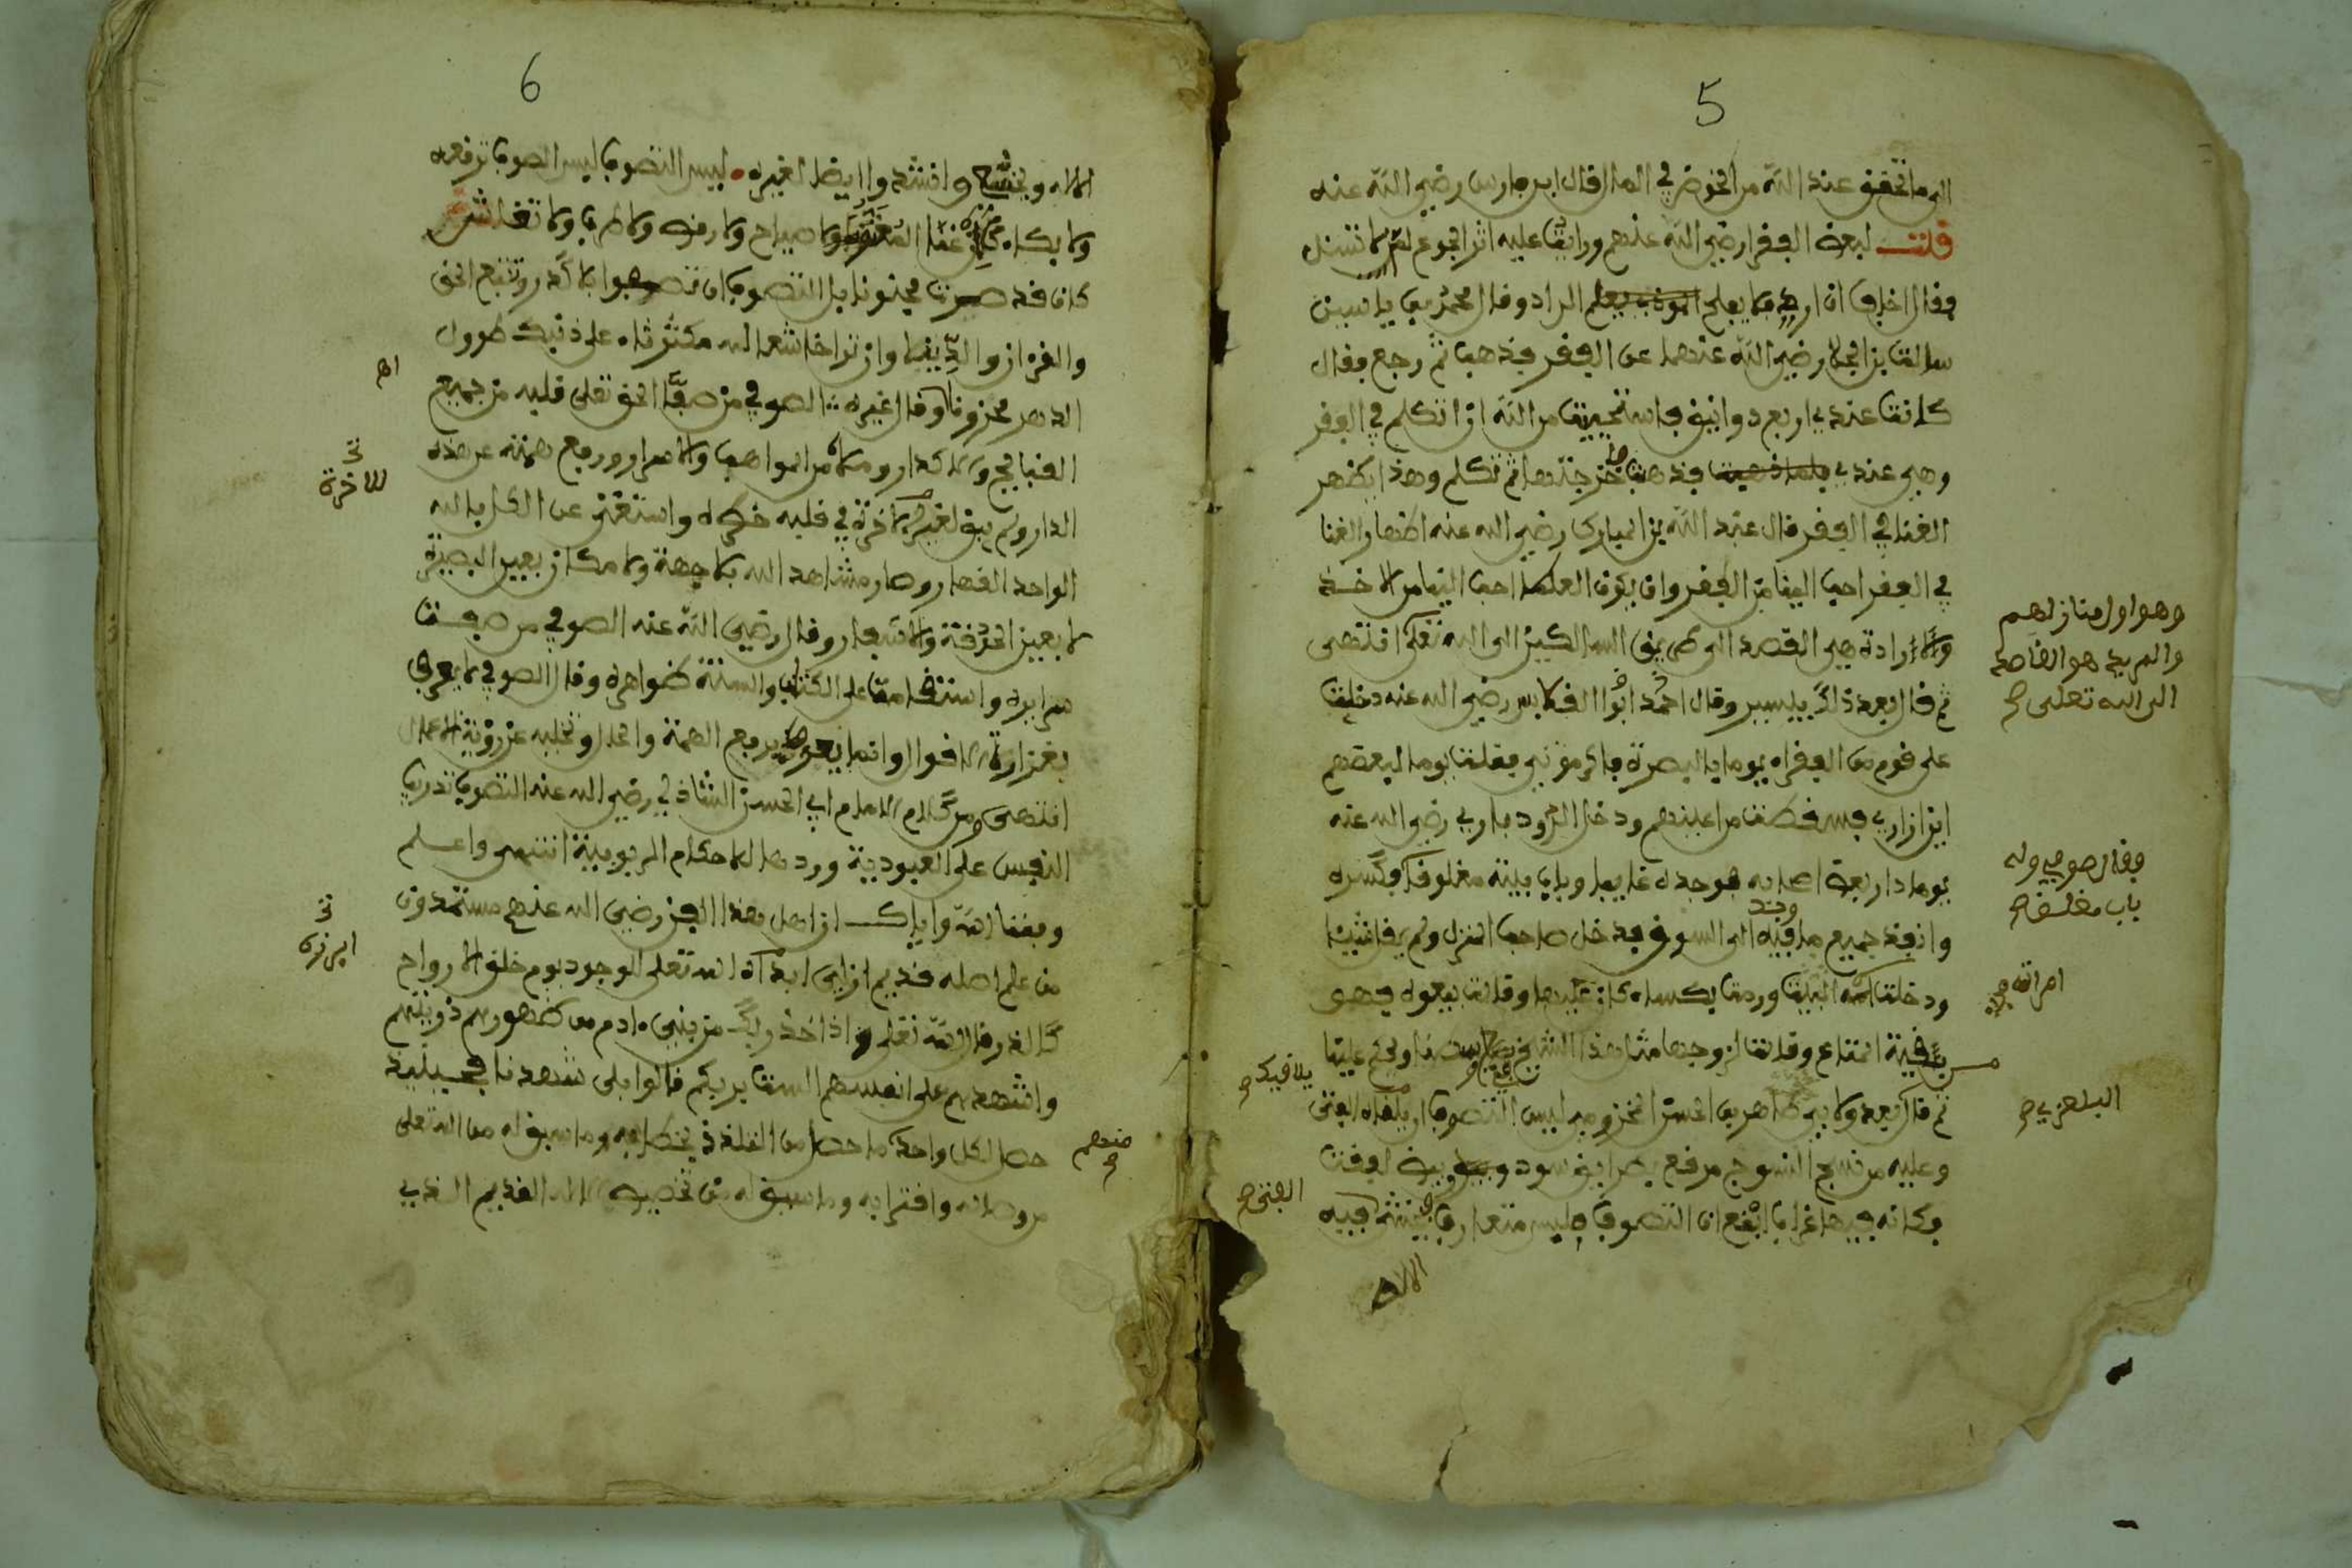 5
الى ما تحقق عند الله من الخوض في المال قال ابن فارس رضي الله عنه
قلت لبعض الفقرا رضي الله عنهم ورايت عليه اثر الجوع لم لا تسئل
فقال اخاف ان اردهم فلا يفلح الراد وقال محمد بن ياسين
سالت بن الجلا رضي الله عنهما عن الفقر فذهب ثم رجع فقال
كانت عندي اربع دوانيق فاستحييت من الله ان اتكلم في الفقر
وهي عندي فذهبت فاخرجتها ثم تكلم وهذا يظهر
الغنا في الفقر قال عبد الله بن المبارك رضي الله عنه اظهار الغنا
في الفقر احب الينا من الفقر وان يكون العلما احب الينا من الاخذ
والارادة هي القصد الى طريق السالكين الى الله تعلى انتهى
ثم قال بعد ذلك بيسير وقال احمد ابوا رضي الله عنه دخلت
على قوم من الفقراء يوما بالبصرة فاكرموني فقلت يوما لبعضهم
اين ازاري فسقطت من اعينهم ودخل الرودباري رضي الله عنه
يوما دار بعض اصحابه فوجده غايبا وباب بيته مغلوقا فكسره
وانفذ جميع ما وجد فيه الى السوق فدخل صاحب المنزل ولم يقل شيئا
ودخلت البيت ورمت بكساء كان عليها وقالت بيعوه فهو
من بقية المتاع وقالت لزوجها مثل هذا الشيخ ويحكم علينا
ثم قال بعد ولابي طاهر بن الحسن المخزومي ليس التصوف ان يلقاه الفتى
وعليه من نسج النسوج مرقع بطرايق سود وبيض لفقت
وكانه فيها غراب ابقع ان التصوف فليس متعارف فيه
الالاه
وهو اول منازلهم
والمريد هو القاصد
الى الله تعلى صح
فقال صوفي وله
باب مغلق صح
امراته صح
البلعزي صح
يلاقيك صح
الفتى صح
6
الالاه ويخشع وانشدوا ايضا لغيره ليس التصوف لبس الصوف ترقعه
ولا بكاء ولا صياح ولا رقص ولا طرب ولا تغاش
كان قد صرت مجنونا بل التصوف ان تصفوا بلا كدر وتتبع الحق
والقرءان والدينا وان ترا خاشعا لله مكترثا على ذنبك طوول
الدهر محزونا وقال غيره الصوفي من صفا الحق تعلى قلبه من جميع
القبايح والاكدار وملاه من المواهب والاسرار ورفع همته عن هذه
الدار ولم يبق لغير الاخرة في قلبه خطره واستغنى عن الكل بالله
الواحد القهار وصار مشاهد الله بلا جهة ولا مكان بعين البصيرة
لا بعين الحدقة والاشفار وقال رضي الله عنه الصوفي من صفت
سرايره واستقامت على الكتاب والسنة ظواهره وقال الصوفي لا يعرف
بغزارة الاقوال وانما يعرف برفع الهمة والحال وتخليه عن رؤية الاعمال
انتهى ومن كلام الامام ابي الحسن الشاذلي رضي الله عنه التصوف تدريب
النفس على العبودية وردها لاحكام الربوبية انتهى واعلم
وفقنا الله واياك ان اهل هذا الفن رضي الله عنهم مستمدون
من علم اصله قديم ازلي ابداه الله تعلى الوجود يوم خلق الارواح
كالذر وقال الله تعلى واذ اخذ ربك من بني ءادم من ظهورهم ذريتهم
واشهدهم على انفسهم الست بربكم قالوا بلى شهدنا فحينئذ
حصل لكل واحد ما حصل من اللذة في خطابه وما سبق له من الله تعلى
من وصاله واقترابه وما سبق له من تخصيص الاله القديم الذي
اهـ
للاخرة
ابرزه
منهم
صح